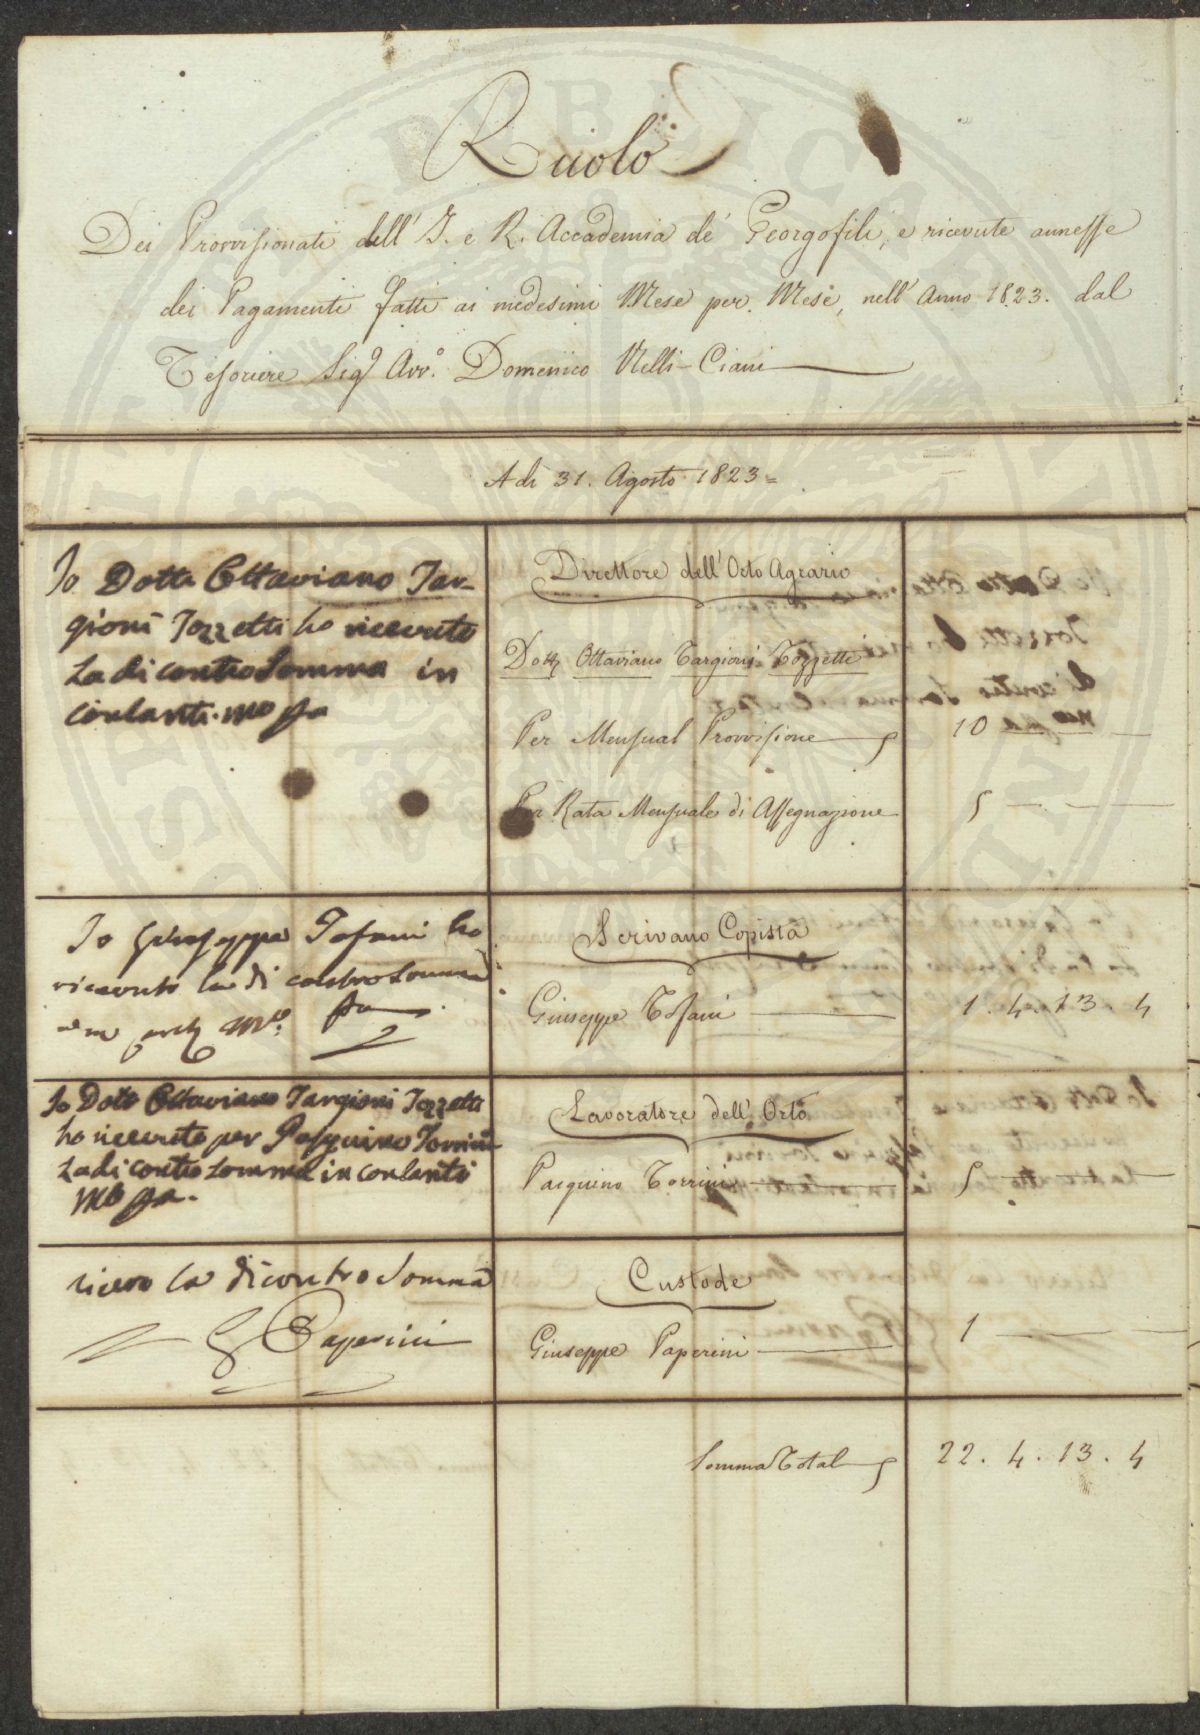 Ruolo
Dei Provvisionati dell' I. e R. Accademia de' Georgofili, e ricevute annesse
dei Pagamenti fatti ai medesimi Mese per Mese, nell' Anno 1823. dal
Tesoriere Sig. Avv.o Domenico Nelli-Ciani
A di 31. Agosto 1823=
Io Dotte Ottaviano Tar-
gioni Tozzetti ho ricevuto
La di contro Somma in
contanti. Mo pa
Direttore dell' Orto Agrario
Dott Ottaviano Targioni Tozzetti
Per Mensual Provvisione
10
Per Rata Mensuale di Assegnazione
5
Io Giuseppe Tofani ho
ricevuto la di contro Somma
Mo. pa
Scrivano Copista
Giuseppe Tofani
1. 4. 13. 4
Io Dotto Ottaviano Targioni Tozzetti
ho ricevuto per Pasquino Torrini
La di contro Somma in contanti
Mo pa.
Lavoratore dell' Orto
Pasquino Torrini
5
ricevo la di contro Somma
G Paperini
Custode
Giuseppe Paperini
1
Somma Total
22. 4. 13. 4